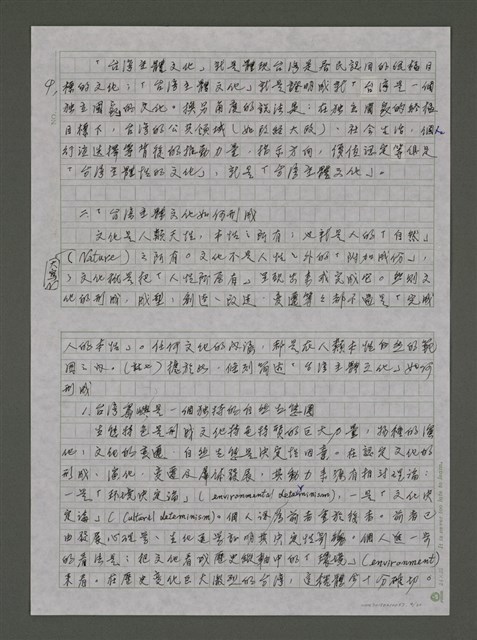 「台灣主體文化」就是體現台灣是台民認同的終極目
標的文化;「台灣主體文化」就是證明或就「台灣是一個
獨立國家的文化。換另角度的說法是:在獨立國家的終極
目標下,台灣的公共領域(如政經大政)、社會生活,個人
行政選擇等背後的推動力量,指示方向,價值認定等俱是
「台灣主體性的文化」,就是「台灣主體文化」。
二「台灣主體文化如何形成
文化是人類天性,本性之所有;也就是人的「自然」
(Nature)之所有。文化不是人性之外的「附加成份」,
文化祇是把「人性所原有」呈現出來或完成它。然則文
化的形成,成型,創造、改造,變遷等之都不過是「完成
人的本性」。任何文化的內涵,都是在人類本性自然的範
圍之內。 基於此,個別論述「台灣主體文化」如何
形成
1.台灣島嶼是一個獨特的自然生態圈
生態特色是形成文化特色特質的巨大力量;物種的演
化,文化的變遷,自然生態是決定性因素。在認定文化的
形成、演化、變遷及屬係發展,其動力來源有相對理論:
一是「環境決定論」(environmental determinism),一是「文化決
定論」(Cultural determinism)。個人認為前者重於後者。前者已
由發展心理學、生化遺學證明其決定性影響。個人進一步
的看法是:把文化看成歷史縱軸中的「環境」(environment)
來看。在歷史變化巨大激烈的台灣,這種體會十分確切。